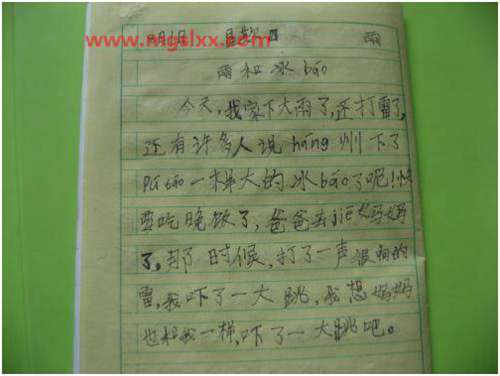 www.mgslxx.com
月1日 星期四 雨
雨和冰báo
今天,我家下大雨了,还打雷了,
还有许多人说háng州下了
pú táo一样大的冰báo了呢!快
要吃晚饭了,爸爸去jiē妈妈
了,那时候,打了一声很响的
雷,我吓了一大跳,我想妈妈
也和我一样,吓了一大跳吧。